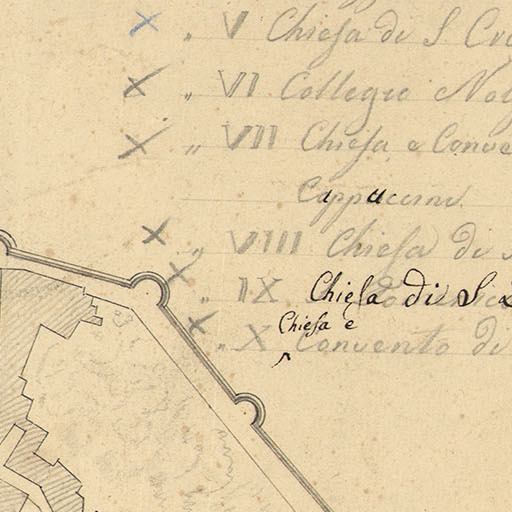 " V Chiesa di S Cro
" VI Collegio No
" VII Chiesa e Conve
Cappuccini
" VIII Chiesa di
" IX Chiesa di S
Chiesa e
" X Convento di